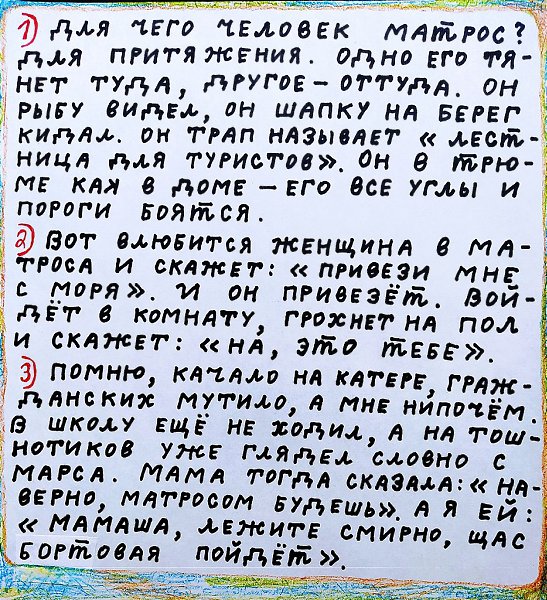 1) ДЛЯ ЧЕГО ЧЕЛОВЕК МАТРОС?
ДЛЯ ПРИТЯЖЕНИЯ. ОДНО ЕГО ТЯ-
НЕТ ТУДА, ДРУГОЕ – ОТТУДА. ОН
РЫБУ ВИДЕЛ, ОН ШАПКУ НА БЕРЕГ
КИДАЛ. ОН ТРАП НАЗЫВАЕТ «ЛЕСТ-
НИЦА ДЛЯ ТУРИСТОВ». ОН В ТРЮ-
МЕ КАК В ДОМЕ – ЕГО ВСЕ УГЛЫ И
ПОРОГИ БОЯТСЯ.
2) ВОТ ВЛЮБИТСЯ ЖЕНЩИНА В МА-
ТРОСА И СКАЖЕТ: «ПРИВЕЗИ МНЕ
С МОРЯ». И ОН ПРИВЕЗЁТ. ВОЙ-
ДЁТ В КОМНАТУ, ГРОХНЕТ НА ПОЛ
И СКАЖЕТ: «НА, ЭТО ТЕБЕ».
3) ПОМНЮ, КАЧАЛО НА КАТЕРЕ, ГРАЖ-
ДАНСКИХ МУТИЛО, А МНЕ НИПОЧЁМ.
В ШКОЛУ ЕЩЁ НЕ ХОДИЛ, А НА ТОШ-
НОТИКОВ УЖЕ ГЛЯДЕЛ СЛОВНО С
МАРСА. МАМА ТОГДА СКАЗАЛА: «НА-
ВЕРНО, МАТРОСОМ БУДЕШЬ». А Я ЕЙ:
«МАМАША, ЛЕЖИТЕ СМИРНО, ЩАС
БОРТОВАЯ ПОЙДЁТ».